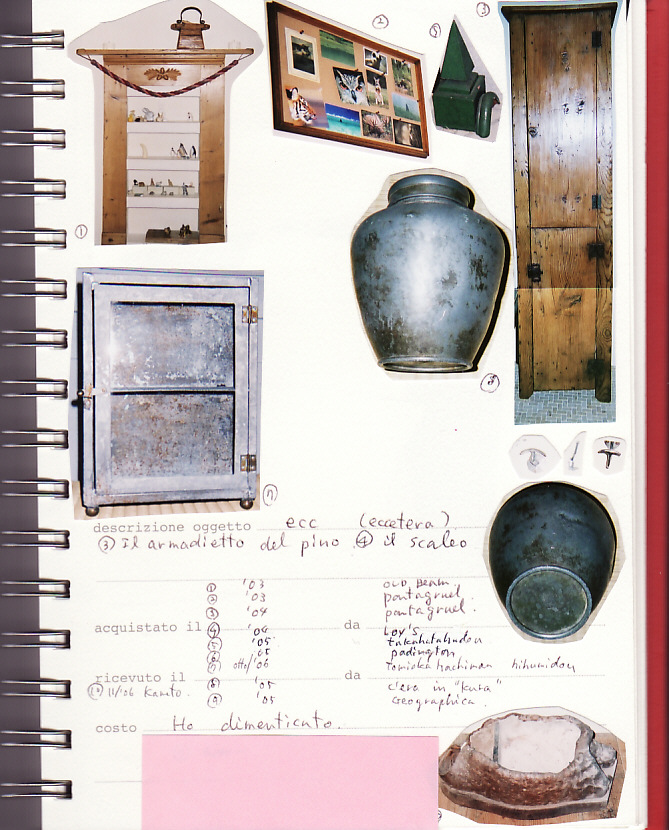 ②
③
⑤
①
⑧
⑦
descrizione oggetto ecc (eccetera)
③ Il armadietto del pino. ④ il scaleo
① '03 OLD BEAM.
② '03 pantagruel.
③ '04 pantagruel.
acquistato il ④ '04 da LOY'S
⑤ '05
⑥ '05 padington
⑦ '06 Tomioka hachiman
ricevuto il ⑧ '05 da c'era in "kura"
11/'06 ⑨ '05 Geographica.
costo Ho dimenticato.